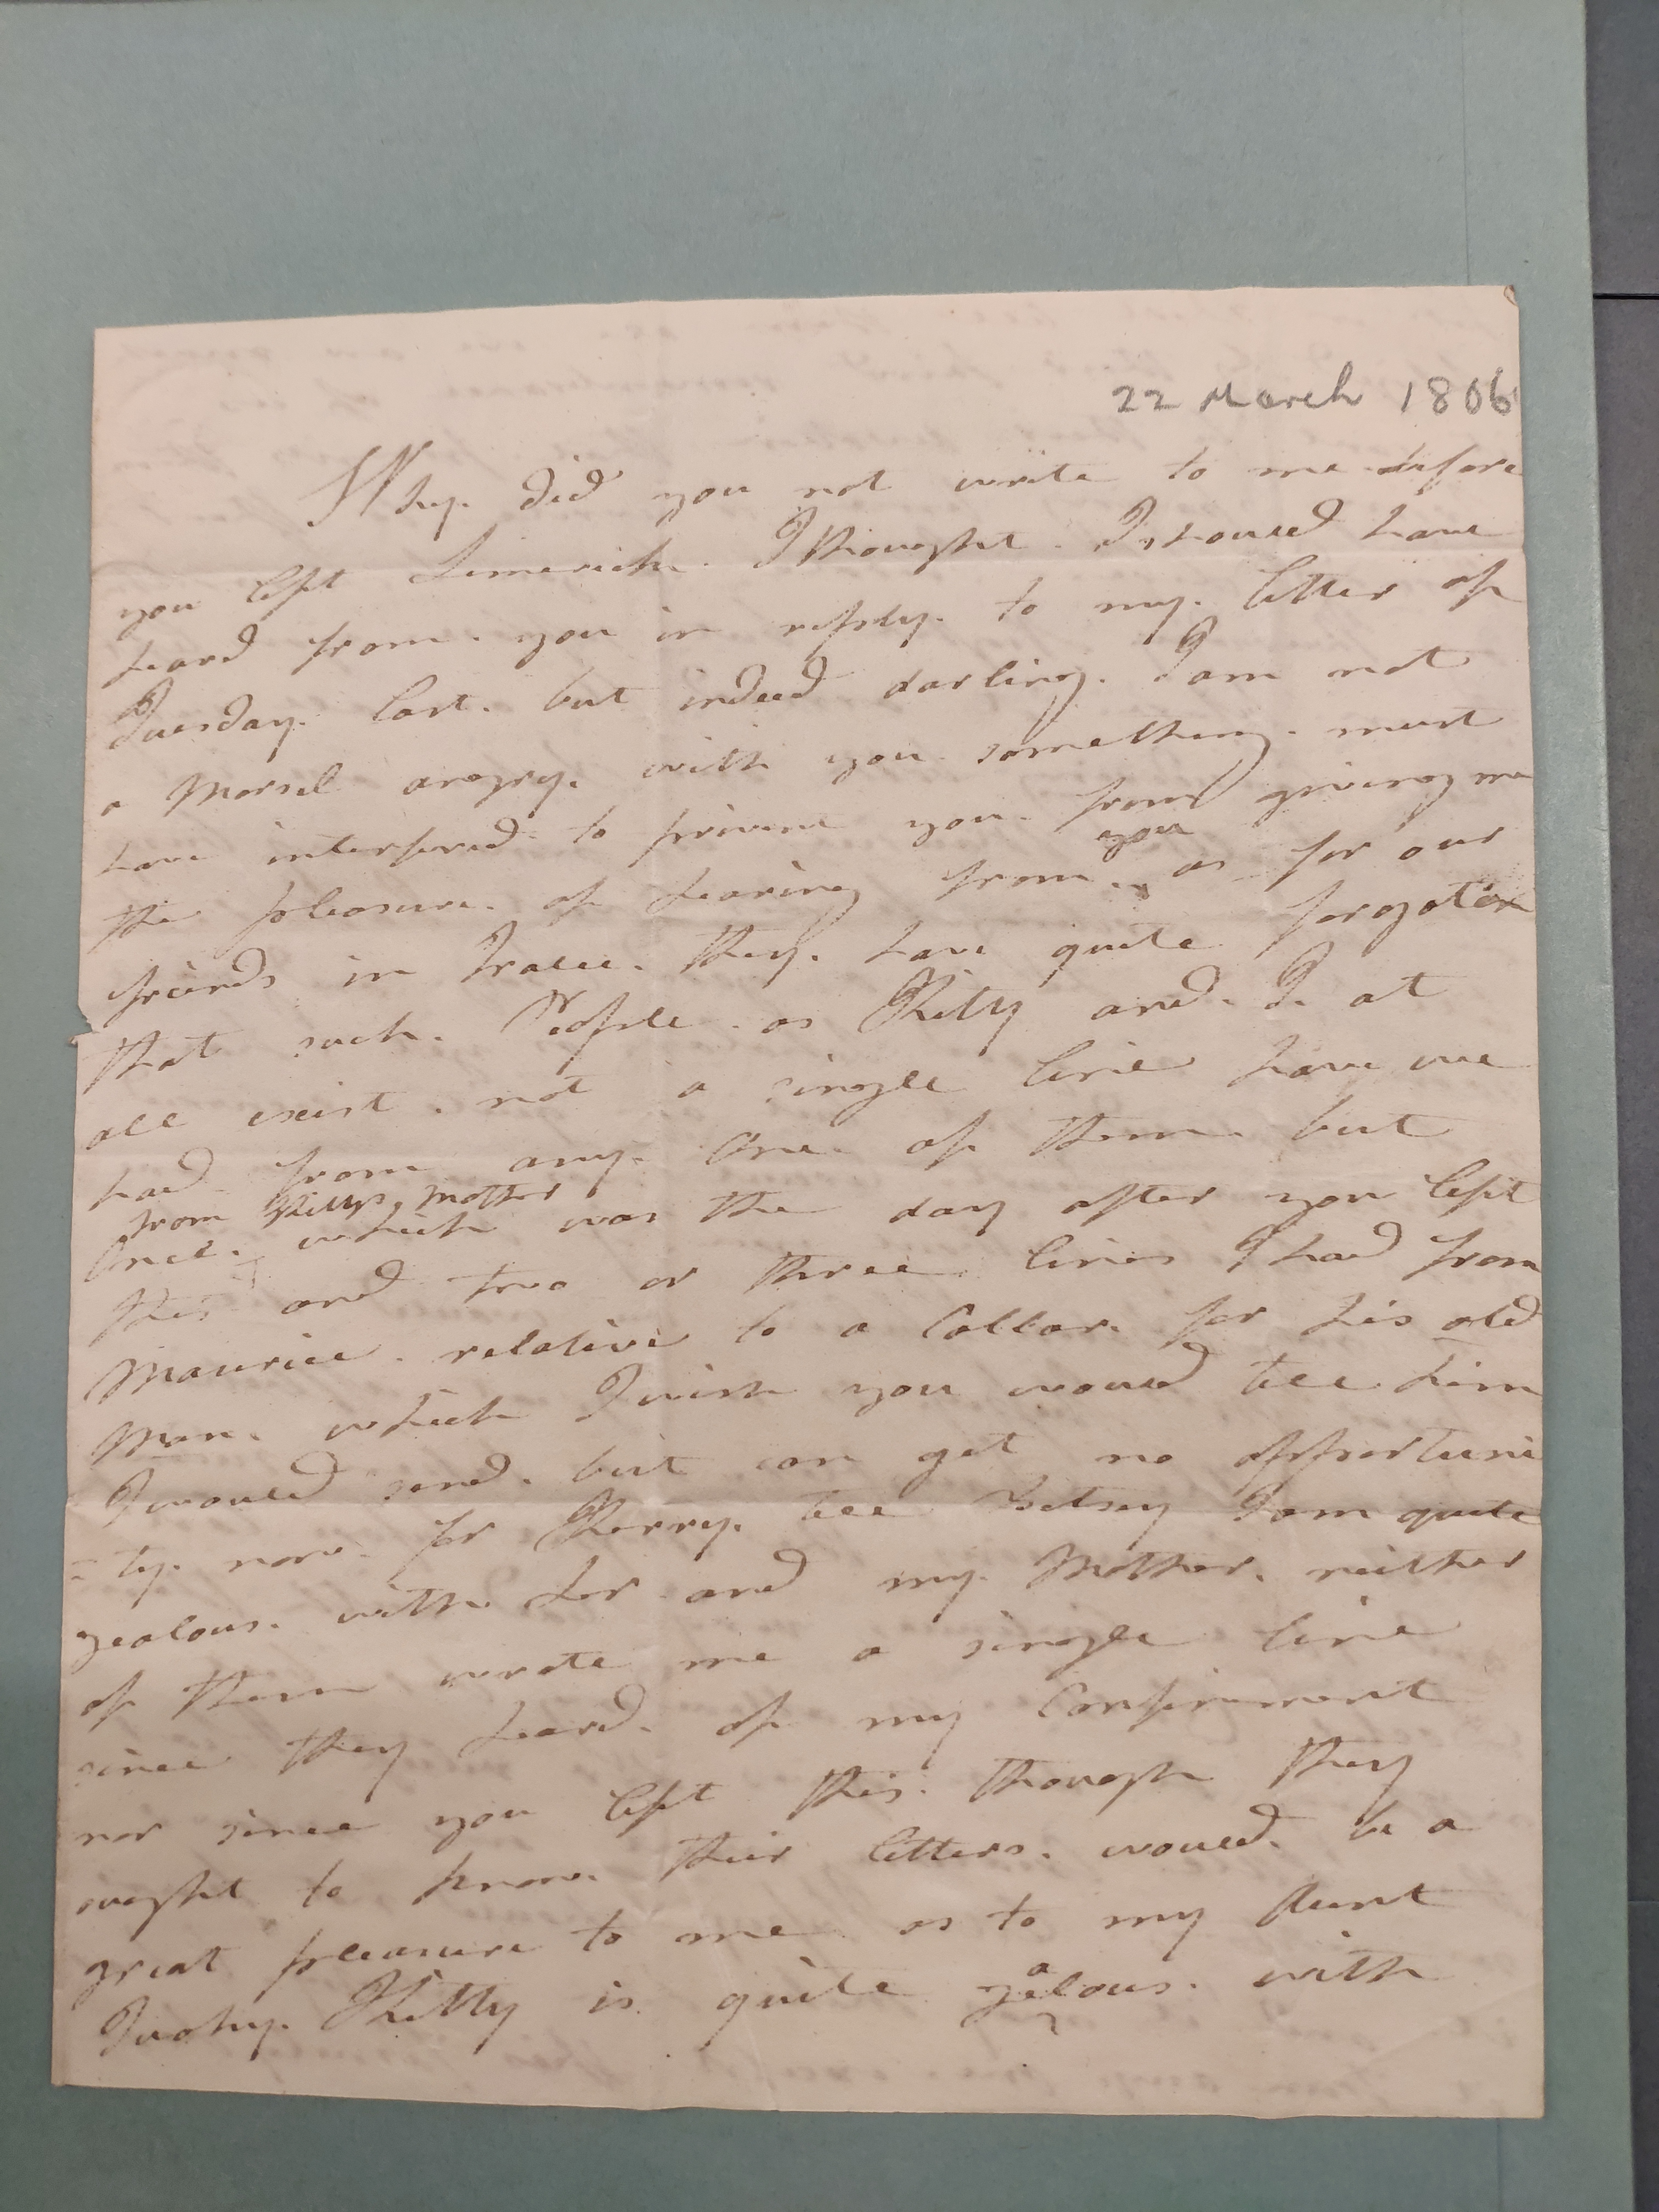 22 March 1806
Why. did you not write to me before
you left Limerick. I thought. I shoued have
heard from. you in reply. to my. letter of
Tuesday. last. but indeed darling. I am not
a Morsel angry. with you something. must
have interfered. to prevent you. from giving me
you
the pleasure. of hearing from. as for our
friends in Tralee. they. have quite forgoten
that such. People. as Kitty and. I. at
all exist. not a single line have we
had from any. One. of them but
from Kittys Mother
Once. which was the day after you left
this and two or three lines I had from
Maurice. relative to a Collar. for his old
Man. which I wish you woued tell him
I woued send. but can get no opportuni
= ty. now. for Kerry. tell Betsey I am quite
gealous. with. her and my. Mother. neither
of them wrote me a single line
since they heard. of my Confinment
nor since you left this. though they
ought to know. their letters. woued. be a
great pleasure to me as to my Aunt
a
Tuohy. Kitty is quite gelous. with